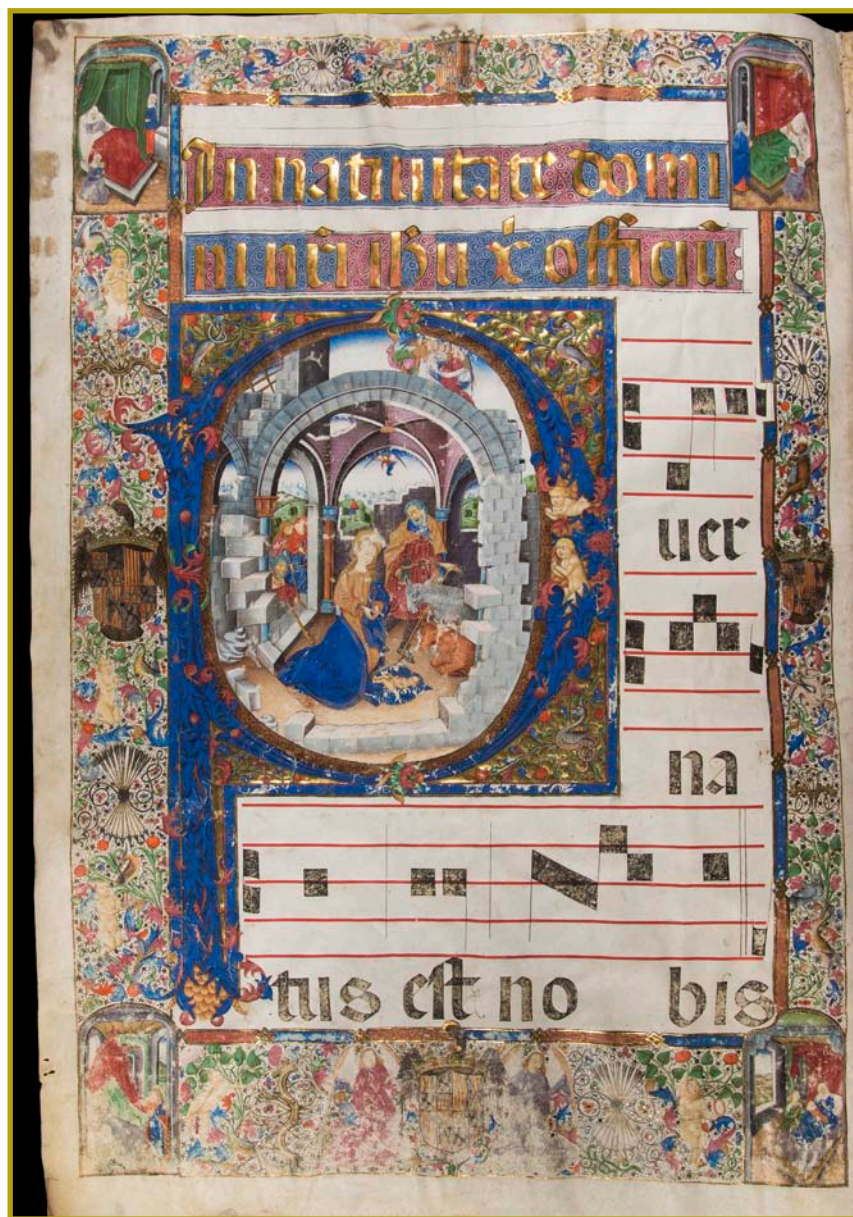 In natiuitate do mi
ni nr̄i ihū x̄ officiū
P
uer
na
tus est no bis